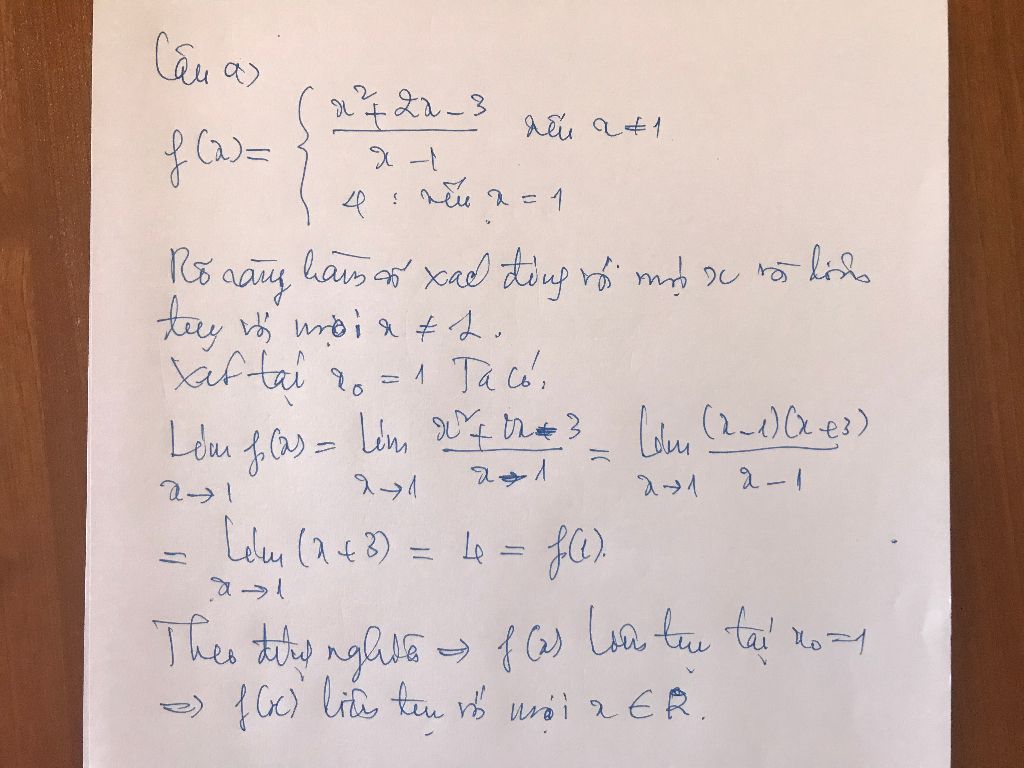 Câu a)
f(x) = { x² + 2x - 3 / x - 1 nếu x ≠ 1
4 : nếu x = 1
Rõ ràng hàm số xác định với mọi x và liên
tục với mọi x ≠ 1.
Xét tại x₀ = 1 Ta có.
Lim x→1 f(x) = Lim x→1 x² + 2x - 3 / x - 1 = Lim x→1 (x-1)(x+3) / x - 1
= Lim x→1 (x + 3) = 4 = f(1).
Theo định nghĩa ⇒ f(x) liên tục tại x₀ = 1
⇒ f(x) liên tục với mọi x ∈ R.